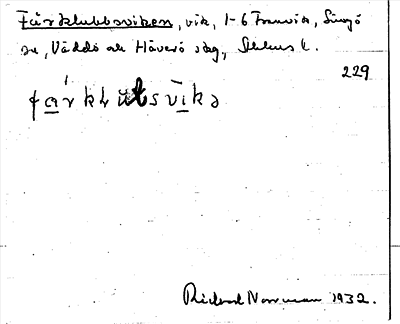 Fårklubbsviken, vik, 1-6 Franvik, Singö
sn, Väddö och Häverö skg, Sthlms l.
229
fárklut̀svikə
Rickard Norrman 1932.